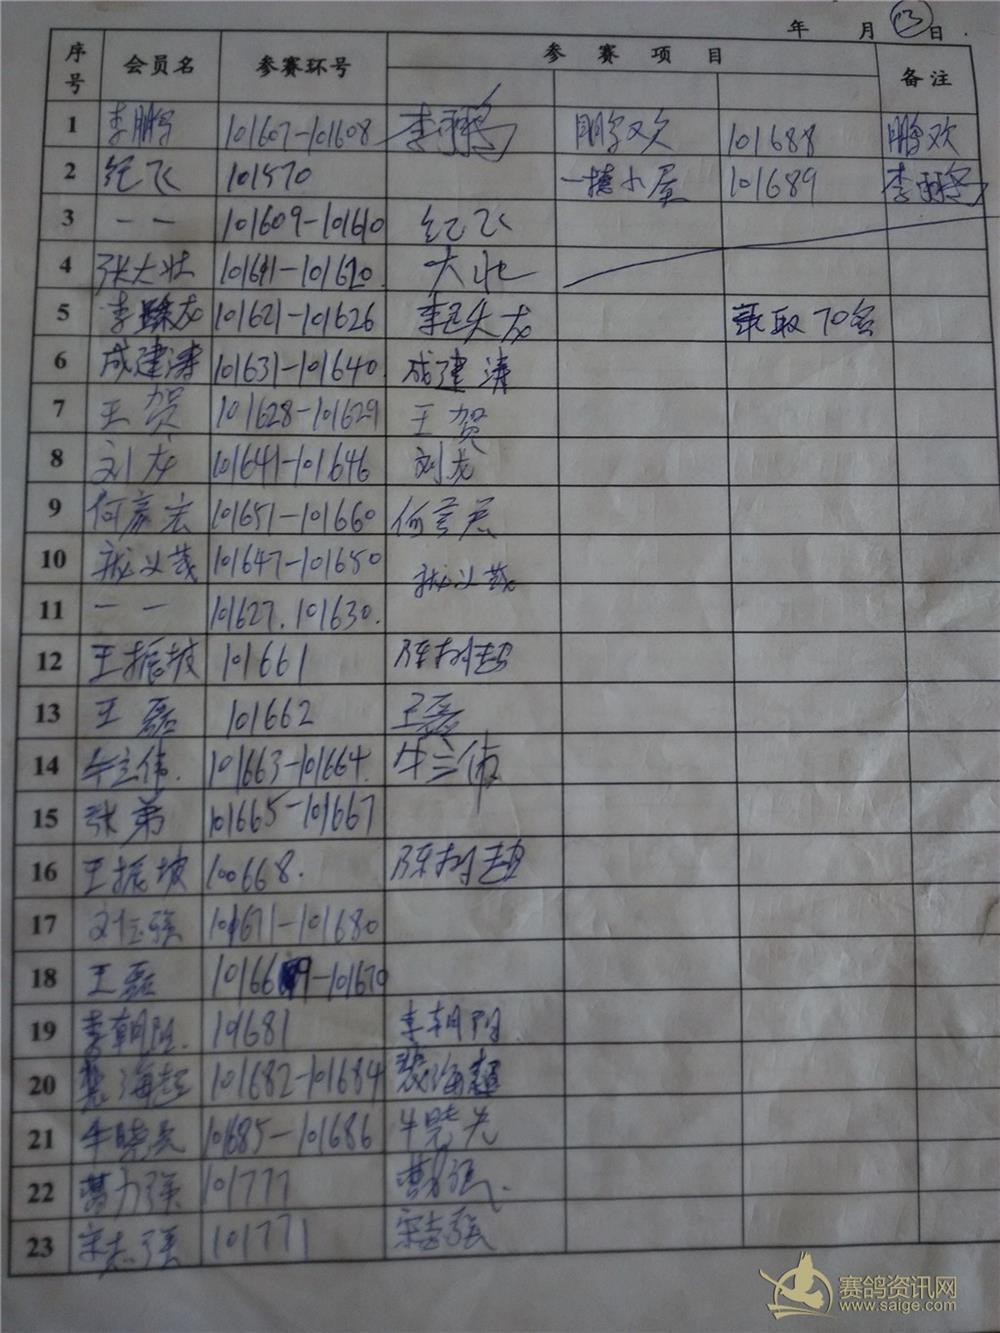 年 月 13 日
序号 会员名 参赛环号 参赛项目 备注
1 李鹏 101607-101608 李鹏 鹏欢 101688 鹏欢
2 纪飞 101570 一撞小屋 101689 李鹏
3 一一 101609-101610 纪飞
4 张大壮 101611-101620. 大壮
5 101621-101626 录取70名
6 成建涛 101631-101640. 成建涛
7 王贺 101628-101629 王贺
8 刘龙 101641-101646 刘龙
9 何彦宏 101651-101660
10 101647-101650
11 一一 101627. 101630.
12 王振坡 101661 陈树超
13 王磊 101662 王磊
14 牛立伟. 101663-101664. 牛立伟
15 张弟 101665-101667
16 王振坡 100668. 陈树超
17 刘玉强 101671-101680
18 王磊 101669-101670
19 李朝阳. 101681 李朝阳.
20 裴海超 101682-101684 裴海超
21 牛晓光 101685-101686 牛晓光
22 曹力强 101777
23 宋志强 101771 宋志强
赛鸽资讯网
www.saige.com